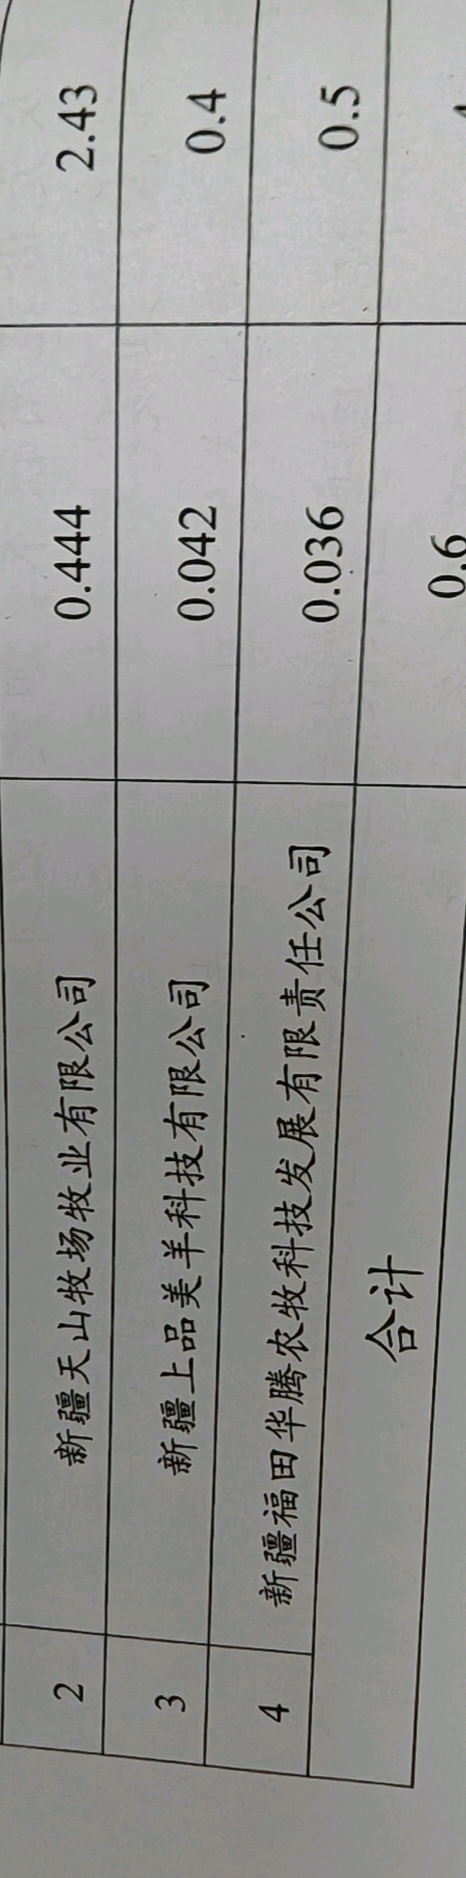 2 新疆天山牧场牧业有限公司 0.444 2.43
3 新疆上品美羊科技有限公司 0.042 0.4
4 新疆福田华腾农牧科技发展有限责任公司 0.036 0.5
合计 0.6